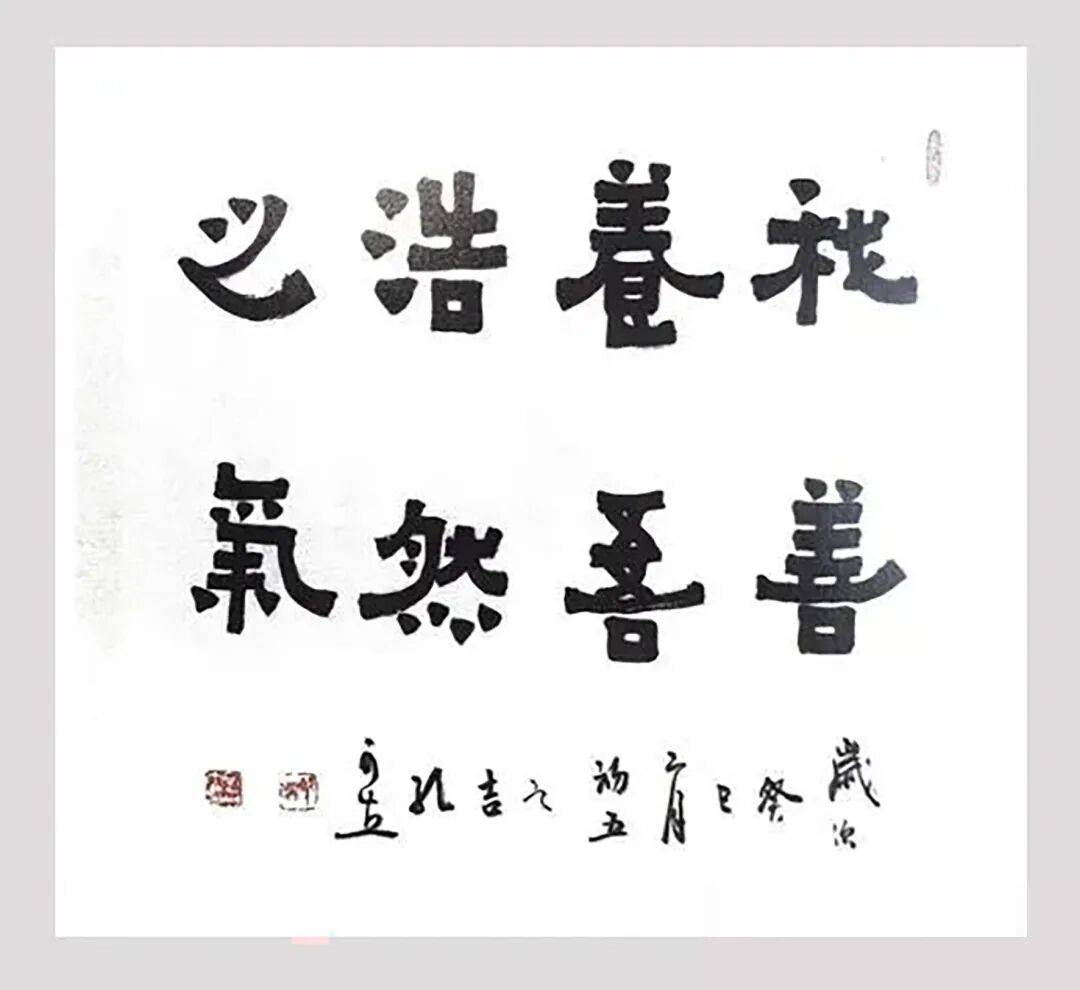 我善
養吾
浩然
之氣
歲次癸巳二月初五之吉孔可立